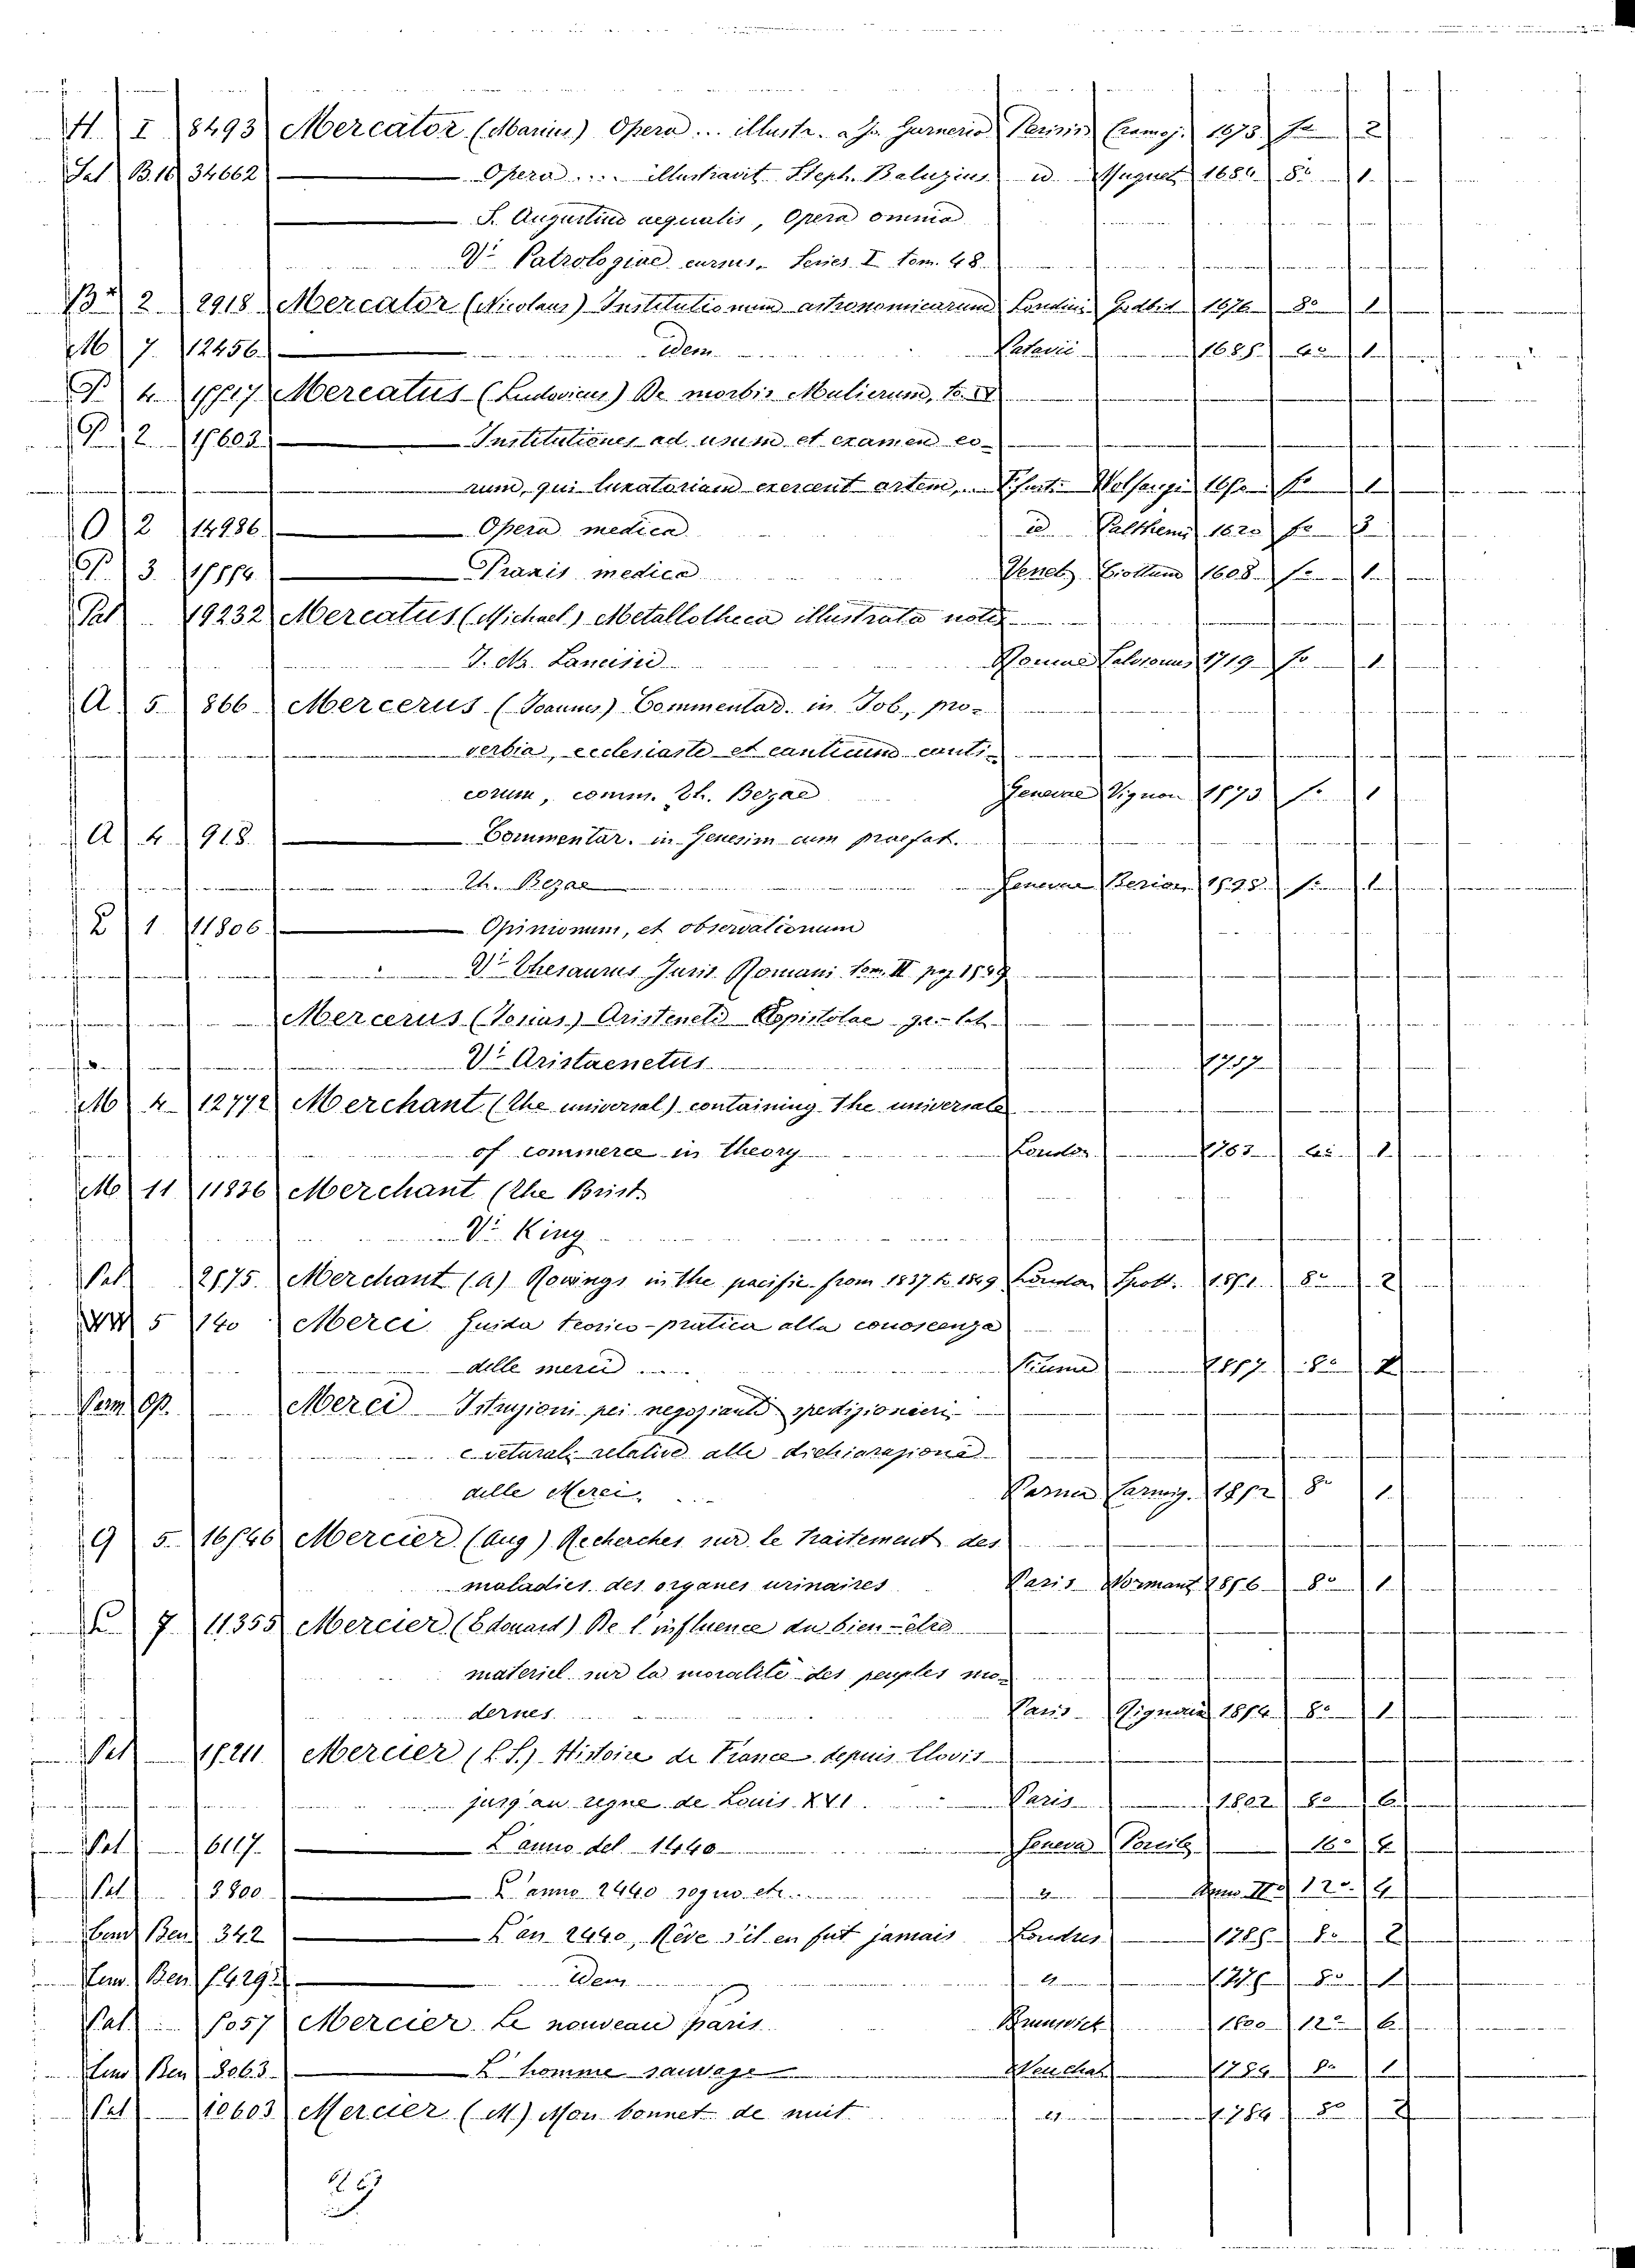 H. I 8493 Mercator (Marius) Opera ... illustr. a Jo. Garnerio Parisiis Cramoj. 1673 fo 2
Sal B.16 34662 Opera .... illustravit Steph. Baluzius id Muguet 1684 8o 1
S. Augustino aequalis, Opera omnia
Vi Patrologiae cursus. Series I tom. 48
2 2918 Mercator (Nicolaus) Institutionum astronomicarum Londini Godbid 1676 8o 1
M 7 12456 Idem Patavii 1685 4o 1
P 4 Mercatus (Ludovicus) De morbis Mulierum, to. IV
P 2 Institutiones ad usum et examen eo-
rum, qui luxatoriam exercent artem, fo 1
O 2 14986 Opera medica id Palthenii 1620 fo 3
P 3. Praxis medica Venet. Giottum 1608 fo 1
Pal 19232 Mercatus (Michael) Metallotheca illustrata notis
J. M. Lancisii Romae Salvionus 1719 fo 1
A 5 866 Mercerus (Joannes) Commentar. in Job, pro-
verbia, ecclesiaste et canticum canti-
corum, comm. Th. Bezae Genevae Vignon 1573 fo 1
A 4 918 Commentar. in Genesim cum praefat.
Th. Bezae Genevae Berion 1598 fo 1
1 11806 Opinionum, et observationum
Vi Thesaurus Juris Romani tom. II pag 1549
Mercerus (Josias) Aristeneti Epistolae gr. lat.
Vi Aristaenetus
M 4 12772 Merchant (The universal) containing the universale
of commerce in theory London 4o 1
M 11 11836 Merchant (The Brist.
Vi King
Pal 2575 Merchant (A) Rovings in the pacific from 1837 to 1849 London Spott. 1851 8o 2
5 140 Merci Guida teorico-pratica alla conoscenza
delle merci Fiume 1857 8o
Misc. Op. Merci Istruzioni pei negozianti spedizionieri
e veturali relative alle dichiarazioni
delle Merci, Parma Carmig. 1852 8o 1
9 5. 16546 Mercier (Aug) Recherches sur le traitement des
maladies des organes urinaires Paris Normant 1856 8o 1
7 11355 Mercier (Edouard) De l'influence du bien-être
materiel sur la moralité des peuples mo-
dernes Paris 1854 8o 1
Pal 15211 Mercier (L S.) Histoire de France depuis Clovis
jusq'au regne de Louis XVI Paris 1802 8o 6
Pal 6117 L'anno del 1440 Geneva 16o 4
Pal 3800 L'anno 2440 sogno etc. " Anno II 12o 4
Cend Ben 342 L'an 2440, Rêve s'il en fut jamais Londres 1785 8o 2
Cend Ben 5429 Idem " 1776 8o 1
Pal 5057 Mercier Le nouveau paris Brunswick 1800 12o 6
Cend Ben 8063 L'homme sauvage Neuchat 1784 8o 1
Pal 10603 Mercier (M) Mon bonnet de nuit " 1784 8o 2